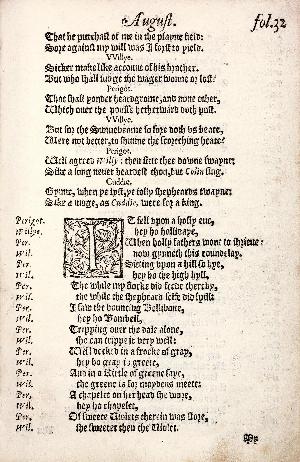 August. fol.32
That he purchast of me in the playne field:
Sore against my will was I forst to yield.
VVillye.
Sicker make like account of his brother.
But who shall iudge the wager wonne or lost?
Perigot.
That shall yonder heardgrome, and none other,
Which ouer the pousse hetherward doth post.
VVillye.
But for the Sunnebeame so sore doth vs beate,
Were not better, to shunne the scorching heate?
Perigot.
Well agreed Willy: then sitte thee downe swayne:
Sike a song neuer heardest thou, but Colin sing.
Cuddie.
Gynne, when ye lyst, ye iolly shepheards twayne:
Sike a iudge, as Cuddie, were for a king.
Perigot. IT fell vpon a holly eue,
Willye. hey ho hollidaye,
Per. When holly fathers wont to shrieue:
Wil. now gynneth this roundelay.
Per. Sitting vpon a hill so hye,
Wil. hey ho the high hyll,
Per. The while my flocke did feede thereby,
Wil. the while the shepheard selfe did spill:
Per. I saw the bouncing Bellibone,
Wil. hey ho Bonibell,
Per. Tripping ouer the dale alone,
Wil. she can trippe it very well:
Per. Well decked in a frocke of gray,
Wil. hey ho gray is greete,
Per. And in a Kirtle of greene saye,
Wil. the greene is for maydens meete:
Per. A chapelet on her head she wore,
Wil. hey ho chapelet,
Per. Of sweete Violets therein was store,
Wil. she sweeter then the Violet.